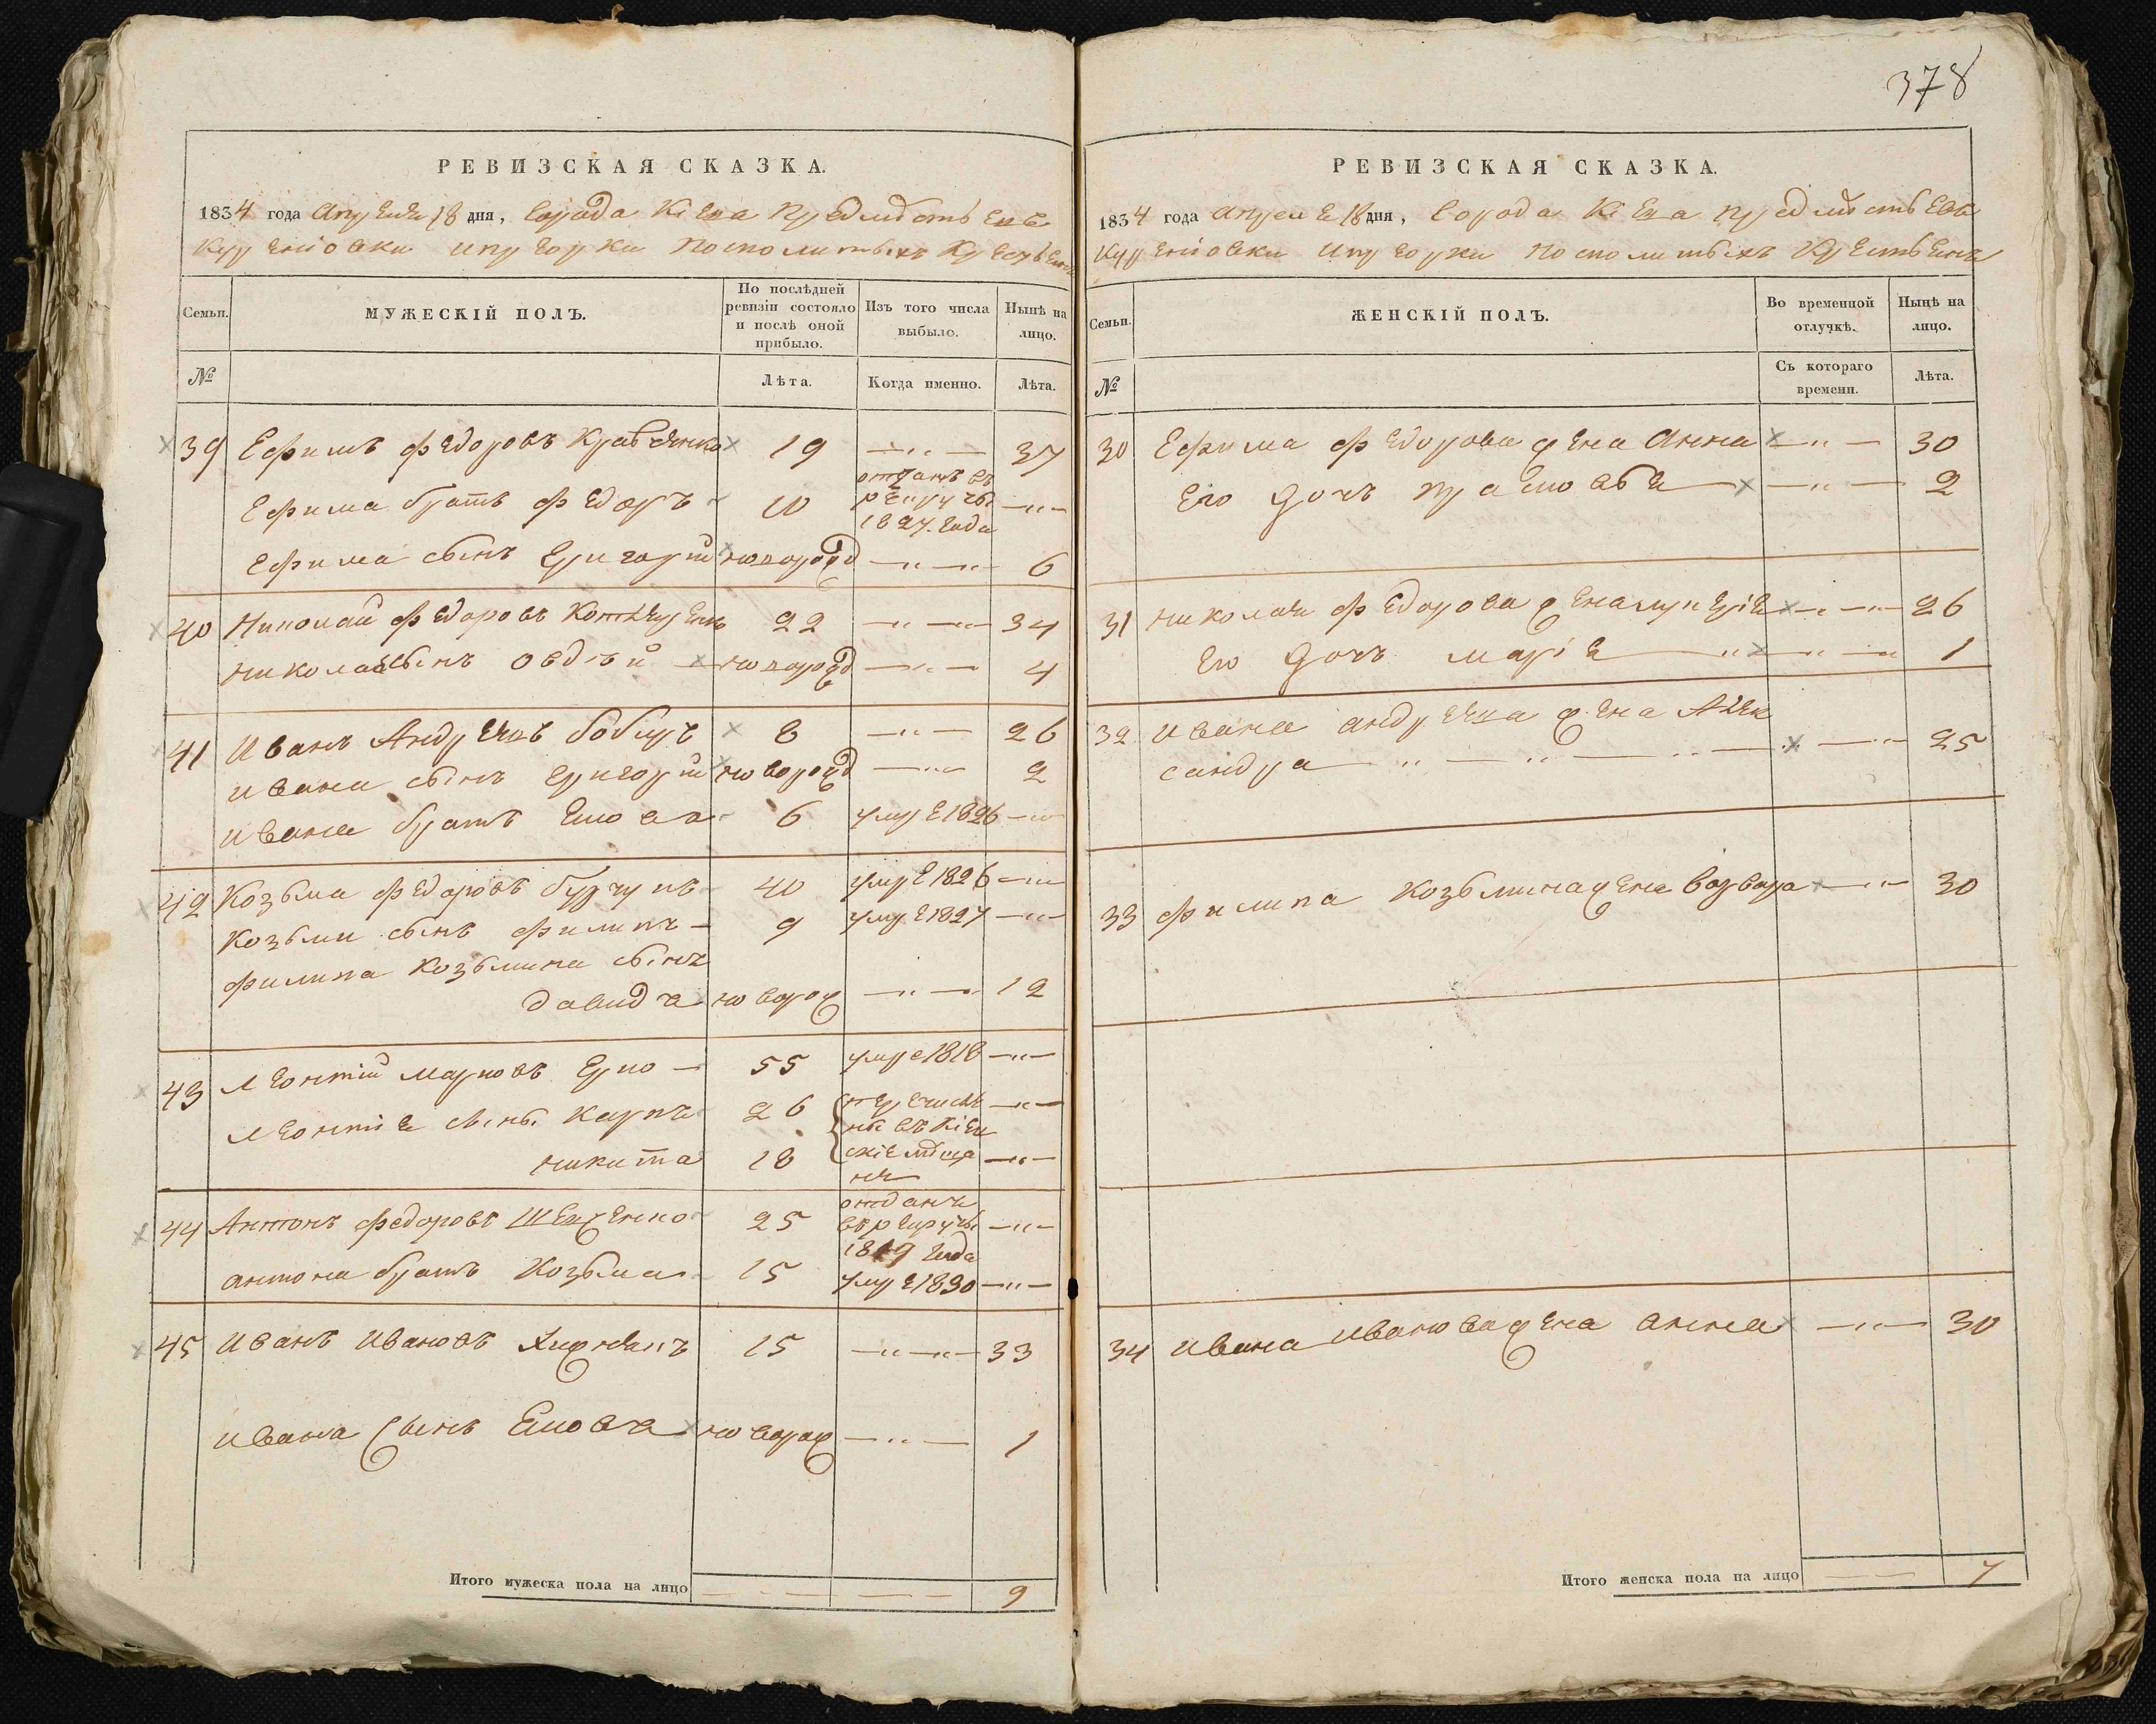 378
РЕВИЗСКАЯ СКАЗКА.
1834 года Апреля 18 дня, Города Кіева предмѣстьевъ
Куреніовки и Пріорки Посполитыхъ Крестьянъ
Семьи.
МУЖЕСКІЙ ПОЛЪ.
По послѣдней ревизіи состояло и послѣ оной прибыло.
Изъ того числа выбыло.
Нынѣ на лицо.
№
Лѣта.
Когда именно.
Лѣта.
39 Ефимъ Федоровъ Кравченко 19 37
Ефима братъ Федоръ 10 отданъ въ рекруты 1827. года
Ефима сынъ Григорій новорожд 6
40 Николай Федоровъ 22 34
Николая сынъ Овдѣй новорожд 4
41 Иванъ Андреевъ Бобырь 8 26
Ивана сынъ Григорій новорожд 2
Ивана братъ Яковъ 6 умре 1826
42 Козьма Федоровъ 40 умре 1826
Козьми сынъ Филипъ 9 умре 1827
Филипа Козьмина сынъ
Давидъ новорож 12
43 Леонтій Марковъ 55 умре 1818
Леонтія сыны Карпъ 26 перечислены въ Кіевскіе мѣщане
Никита 18
44 Антонъ Федоровъ Шевченко 25 отданъ въ рекруты 1819 года
Антона братъ Козьма 15 умре 1830
45 Иванъ Ивановъ 15 33
Ивана сынъ Яковъ новорож 1
Итого мужеска пола на лицо 9
РЕВИЗСКАЯ СКАЗКА.
1834 года Апреля 18 дня, Города Кіева предмѣстьевъ
Куреніовки и Пріорки Посполитыхъ Крестьянъ
Семьи.
ЖЕНСКІЙ ПОЛЪ.
Во временной отлучкѣ.
Нынѣ на лицо.
№
Съ котораго времени.
Лѣта.
30 Ефима Федорова жена Анна 30
Его дочь 2
31 Николая Федорова жена 26
Его дочь Марія 1
32 Ивана Андреева жена Алек
сандра 25
33 Филипа Козьмина жена Варвара 30
34 Ивана Иванова жена Анна 30
Итого женска пола на лицо 7